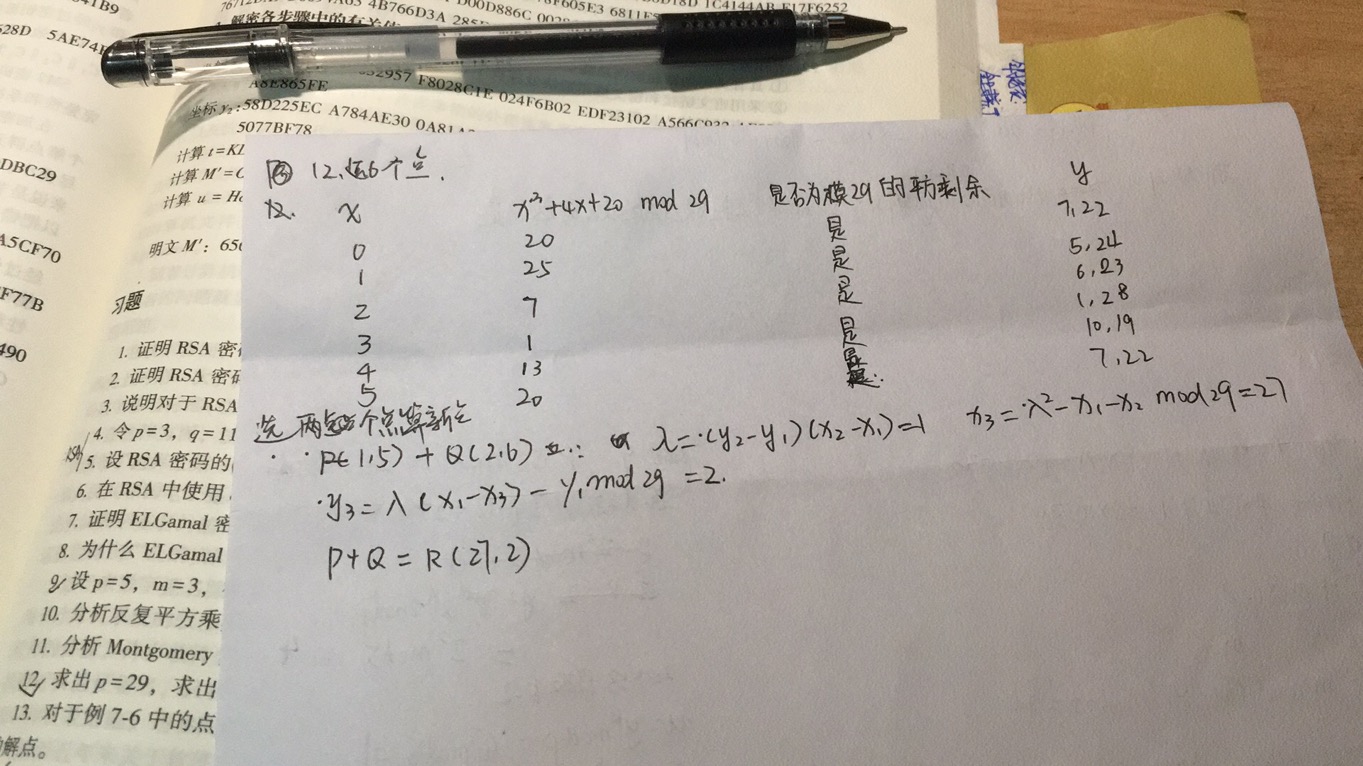 41B9
628D 5AE74
DBC29
A5CF70
F77B
490
4B766D3A
D00D886C
F605E3 6811F
1C4144AB E17F6252
解密各步骤中的有关值
32957 F8028C1E 024F6B02 EDF23102 A566C932
A8E865FE
坐标 y₂:58D225EC A784AE30 0A81A
5077BF78
计算 t=KD
计算 M′=C
计算 u = H
明文 M′: 656
习题
1. 证明 RSA 密
2. 证明 RSA 密
3. 说明对于 RSA
4. 令 p=3, q=11
5. 设 RSA 密码的
6. 在 RSA 中使用
7. 证明 ELGamal 密
8. 为什么 ELGamal
9. 设 p=5, m=3,
10. 分析反复平方乘
11. 分析 Montgomery
12. 求出 p=29, 求出
13. 对于例 7-6 中的点
的解点。
12. 选6个点.
12. x x³+4x+20 mod 29 是否为模29的平方剩余 y
0 20 是 7,22
1 25 是 5,24
2 7 是 6,23
3 1 是 1,28
4 13 是 10,19
5 20 是 7,22
选两个点算新点
P(1,5) + Q(2,6) λ=(y₂-y₁)(x₂-x₁)=1 x₃=λ²-x₁-x₂ mod 29=27
y₃=λ(x₁-x₃)-y₁ mod 29 =2.
P+Q=R(27,2)